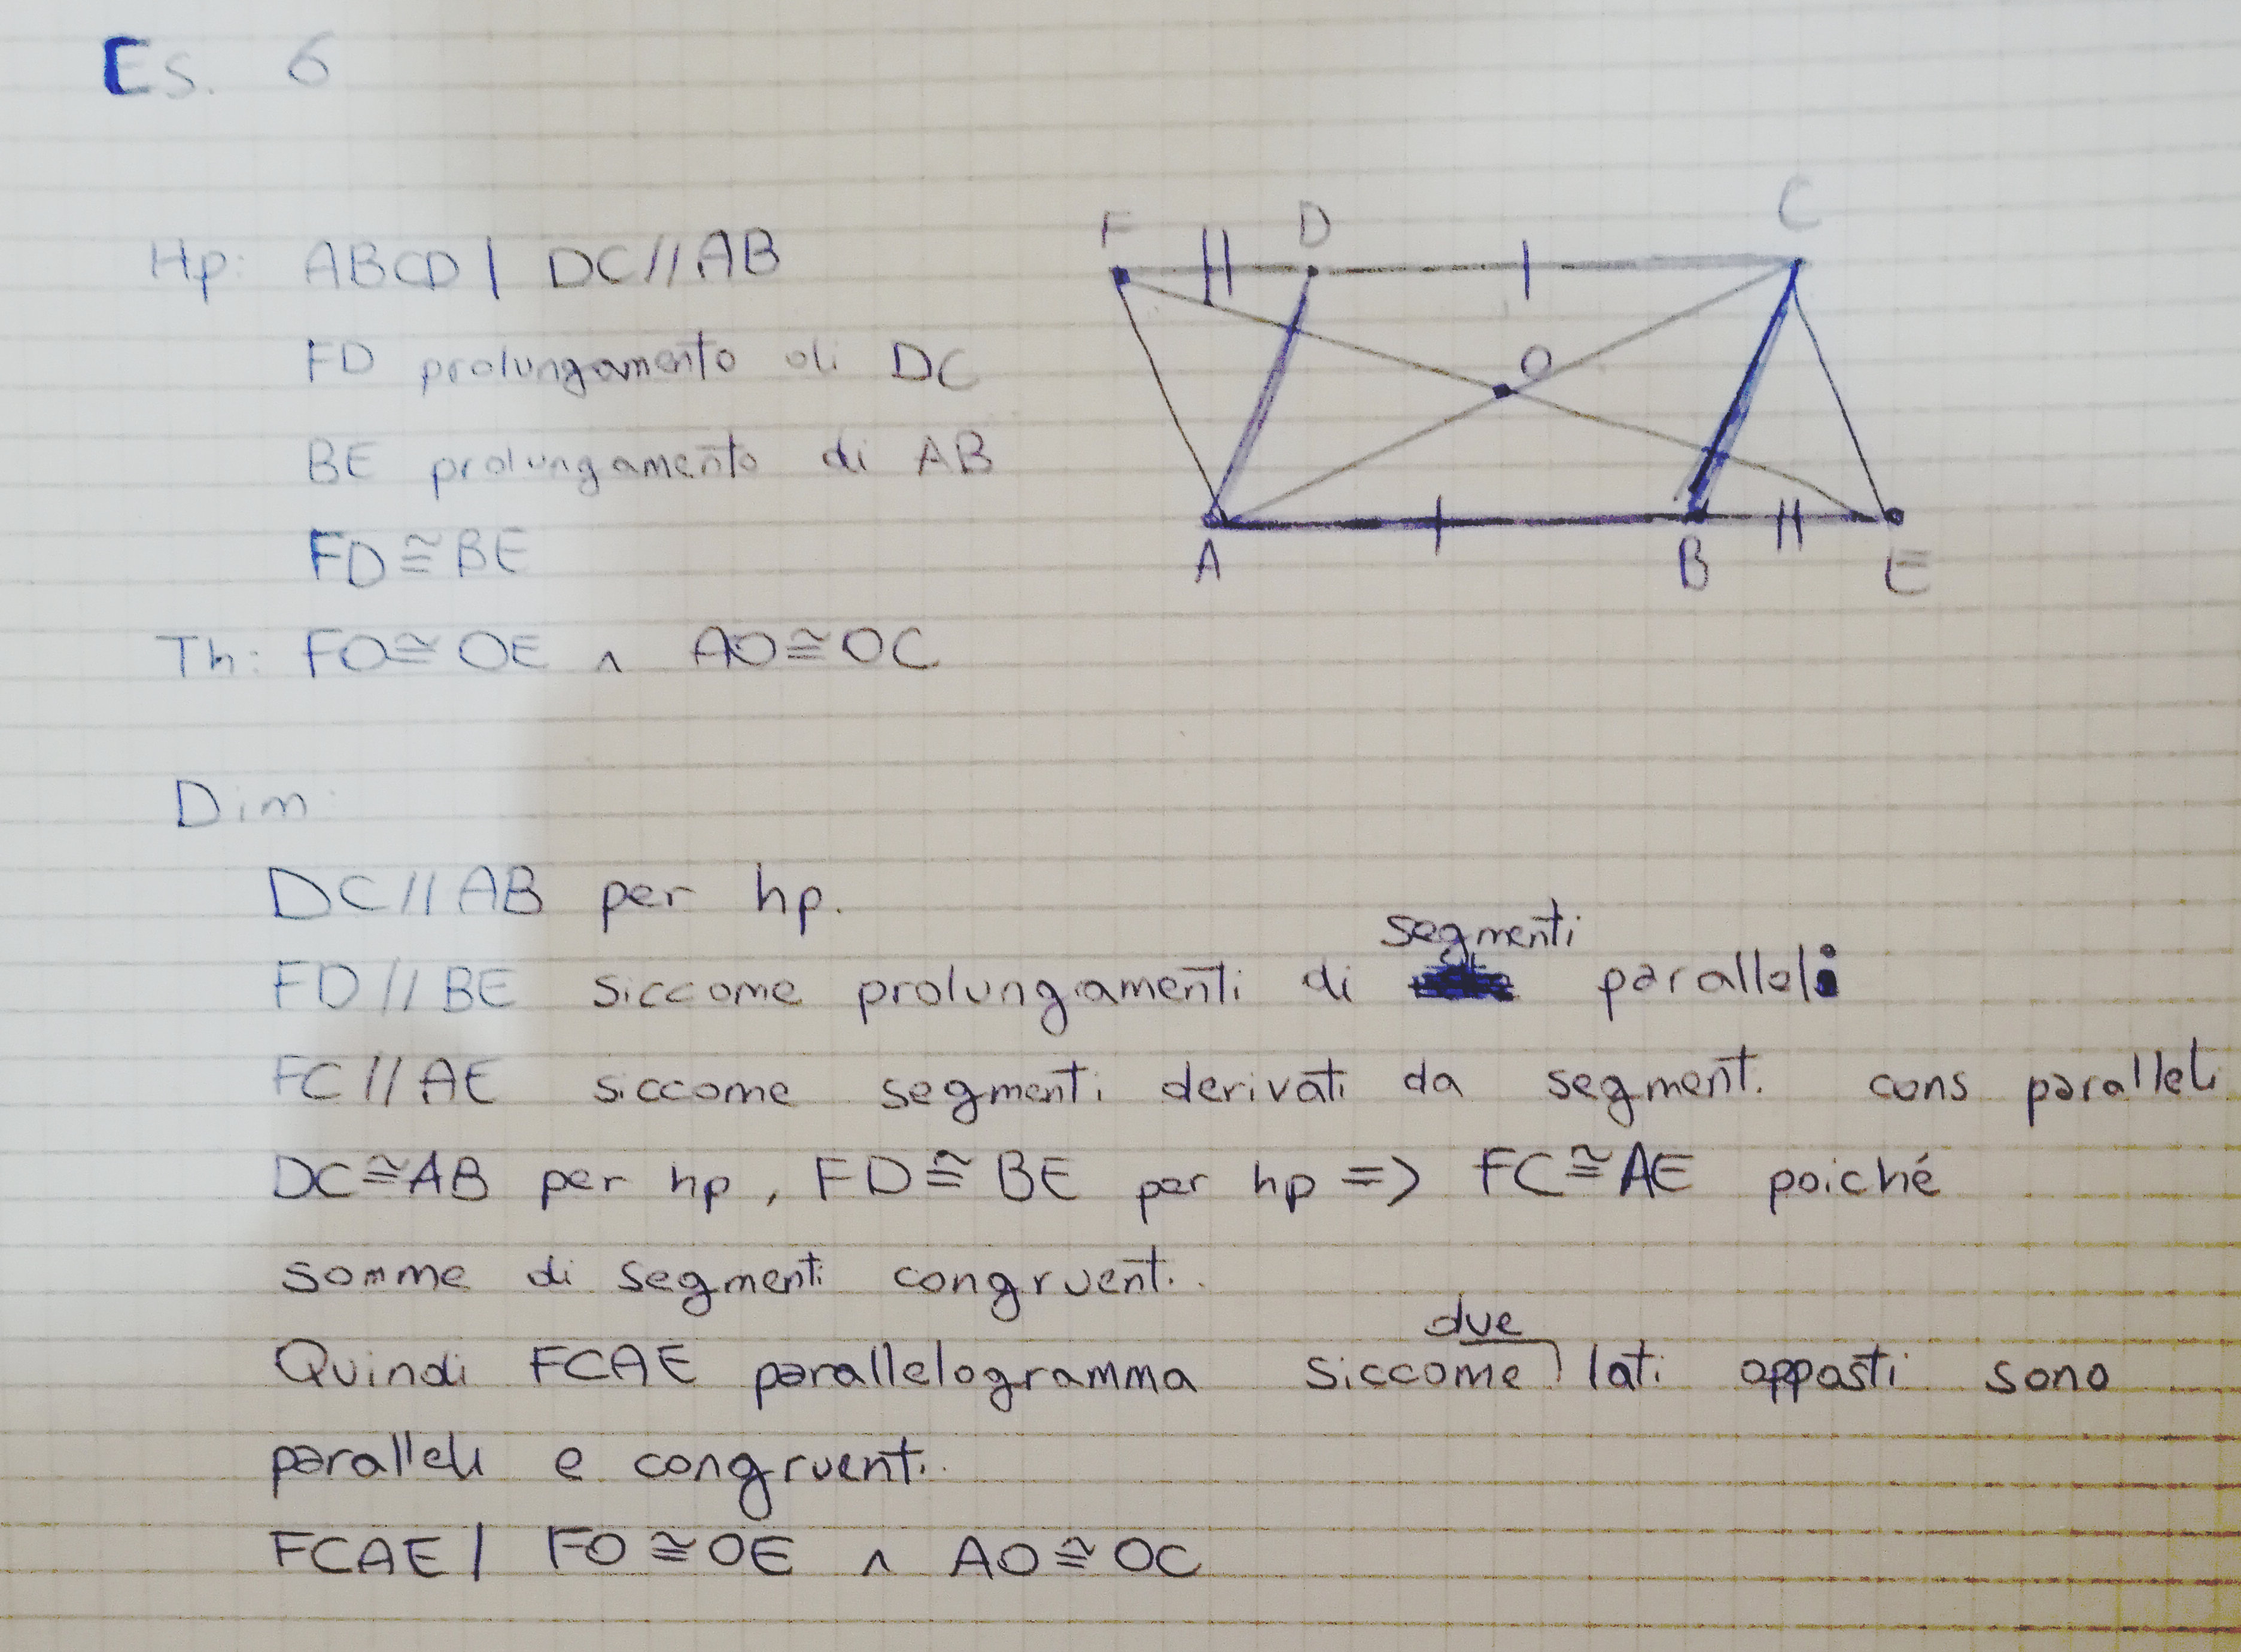 Es. 6
Hp: ABCD | DC//AB
FD prolungamento di DC
BE prolungamento di AB
FD≅BE
Th: FO≅OE ∧ AO≅OC
F D C
O
A B E
Dim:
DC//AB per hp.
segmenti
FD//BE siccome prolungamenti di paralleli
FC//AE siccome segmenti derivati da segmenti cons paralleli
DC≅AB per hp, FD≅BE per hp => FC≅AE poiché
somme di segmenti congruenti.
due
Quindi FCAE parallelogramma siccome lati opposti sono
paralleli e congruenti.
FCAE | FO≅OE ∧ AO≅OC